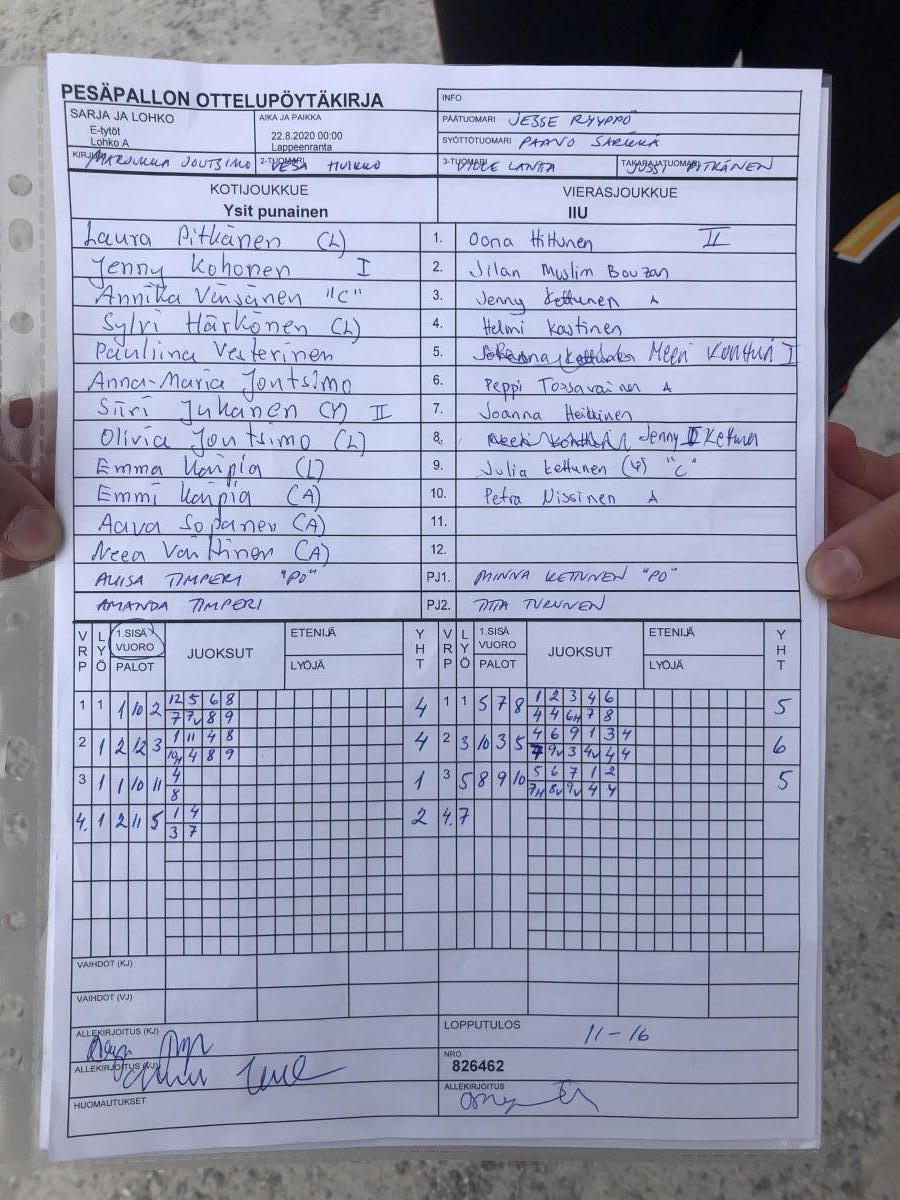 PESÄPALLON OTTELUPÖYTÄKIRJA
INFO
SARJA JA LOHKO
E-tytöt
Lohko A
AIKA JA PAIKKA
22.8.2020 00:00
Lappeenranta
PÄÄTUOMARI JESSE RYYPPÖ
SYÖTTÖTUOMARI PAAVO
MARJUKKA JOUTSIMO
2-TUOMARI VESA HUKKO
3-TUOMARI VILLE LANTA
TAKARAJATUOMARI JUSSI PITKÄNEN
KOTIJOUKKUE
Ysit punainen
VIERASJOUKKUE
IIU
Laura Pitkänen (L) 1. Oona Hiltunen II
Jenny Kohonen I 2. Jilan Muslim Bouzan
Annika Väisänen "C" 3. Jenny A
Sylvi Härkönen (L) 4. Helmi Kastinen
Pauliina Vesterinen 5. Meeri Kontturi I
Anna-Maria Joutsimo 6. Peppi Tossavainen A
Siiri Juhanen (Y) II 7. Joanna Heikkinen
Olivia Joutsimo (L) 8. Jenny
Emma Karpia (L) 9. Julia Kettunen (Y) "C"
Emmi Karpia (A) 10. Petra Nissinen A
Aava Sopanen (A) 11.
Neea Vanttinen (A) 12.
AUISA TIMPERI "PO" PJ1. MINNA KETTUNEN "PO"
AMANDA TIMPERI PJ2. TIIA TURUNEN
VRP LYÖ 1.SISÄ VUORO PALOT JUOKSUT ETENIJÄ LYÖJÄ YHT VRP LYÖ 1.SISÄ VUORO PALOT JUOKSUT ETENIJÄ LYÖJÄ YHT
1 1 1 10 2 12 5 6 8 4 1 1 5 7 8 1 2 3 4 6 5
7 7v 8 9 4 4 6H 7 8
2 1 2 12 3 1 11 4 8 4 2 3 10 3 5 4 6 9 1 3 4 6
10H 4 8 9 7 9v 3 4v 4 4
3 1 1 10 11 4 1 3 5 8 9 10 5 6 7 1 2 5
8 7H 8v 9v 4 4
4. 1 2 11 5 1 4 2 4. 7
3 7
VAIHDOT (KJ)
VAIHDOT (VJ)
ALLEKIRJOITUS (KJ)
LOPPUTULOS 11-16
ALLEKIRJOITUS (VJ)
NRO
826462
HUOMAUTUKSET
ALLEKIRJOITUS